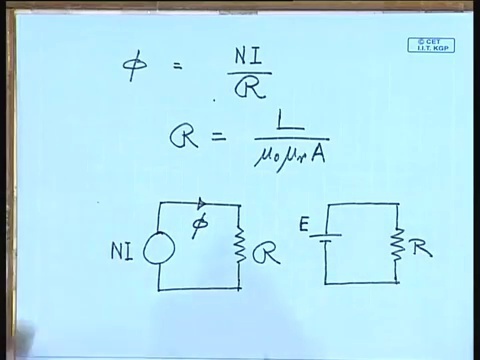 © CET
I.I.T. KGP
φ = NI / R
R = L / μ₀μᵣA
NI φ R
E R